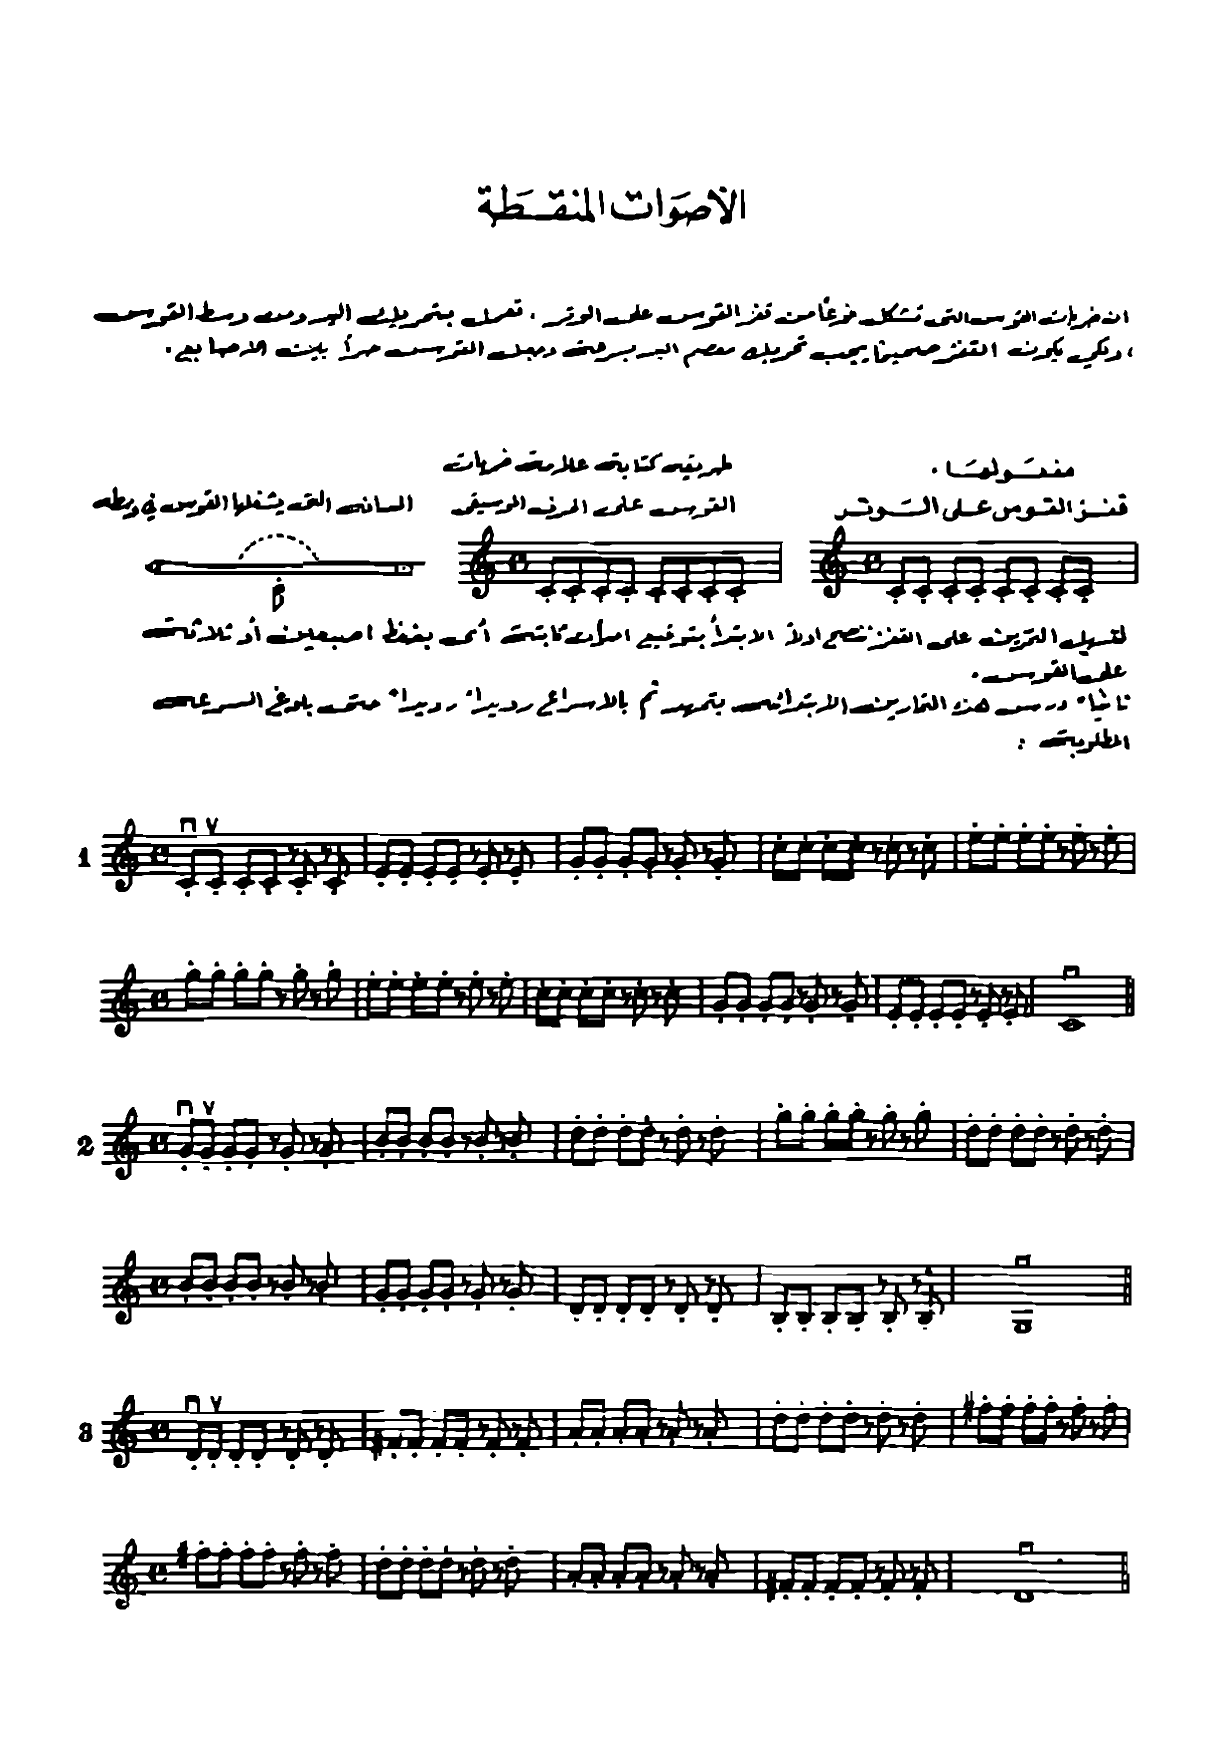 الأصوات المنقطة
ان ضربات القوس التي تشكل نوعاً من قفز القوس على الوتر ، تعمل بتحريك اليد ومن وسط القوس
، ولكي يكون القفز صحيحاً يجب تحريك معصم اليد بسرعة وجعل القوس حراً بين الاصابع .
مفعولها .
قفز القوس على الوتر
طريقة كتابة علامة ضربات
القوس على الحرف الموسيقى
المسافة التي يشغلها القوس في وسطه
لتسهيل التمرين على القفز ننصح اولاً الابتدأ بتوقيع اصوات ثابتة أي بضغط اصبعين أو ثلاثة
على القوس .
ثانياً درس هذه التمارين الابتدائية بتمهد ثم بالاسراع رويداً رويداً حتى بلوغ السرعة
المطلوبة :
1
2
3